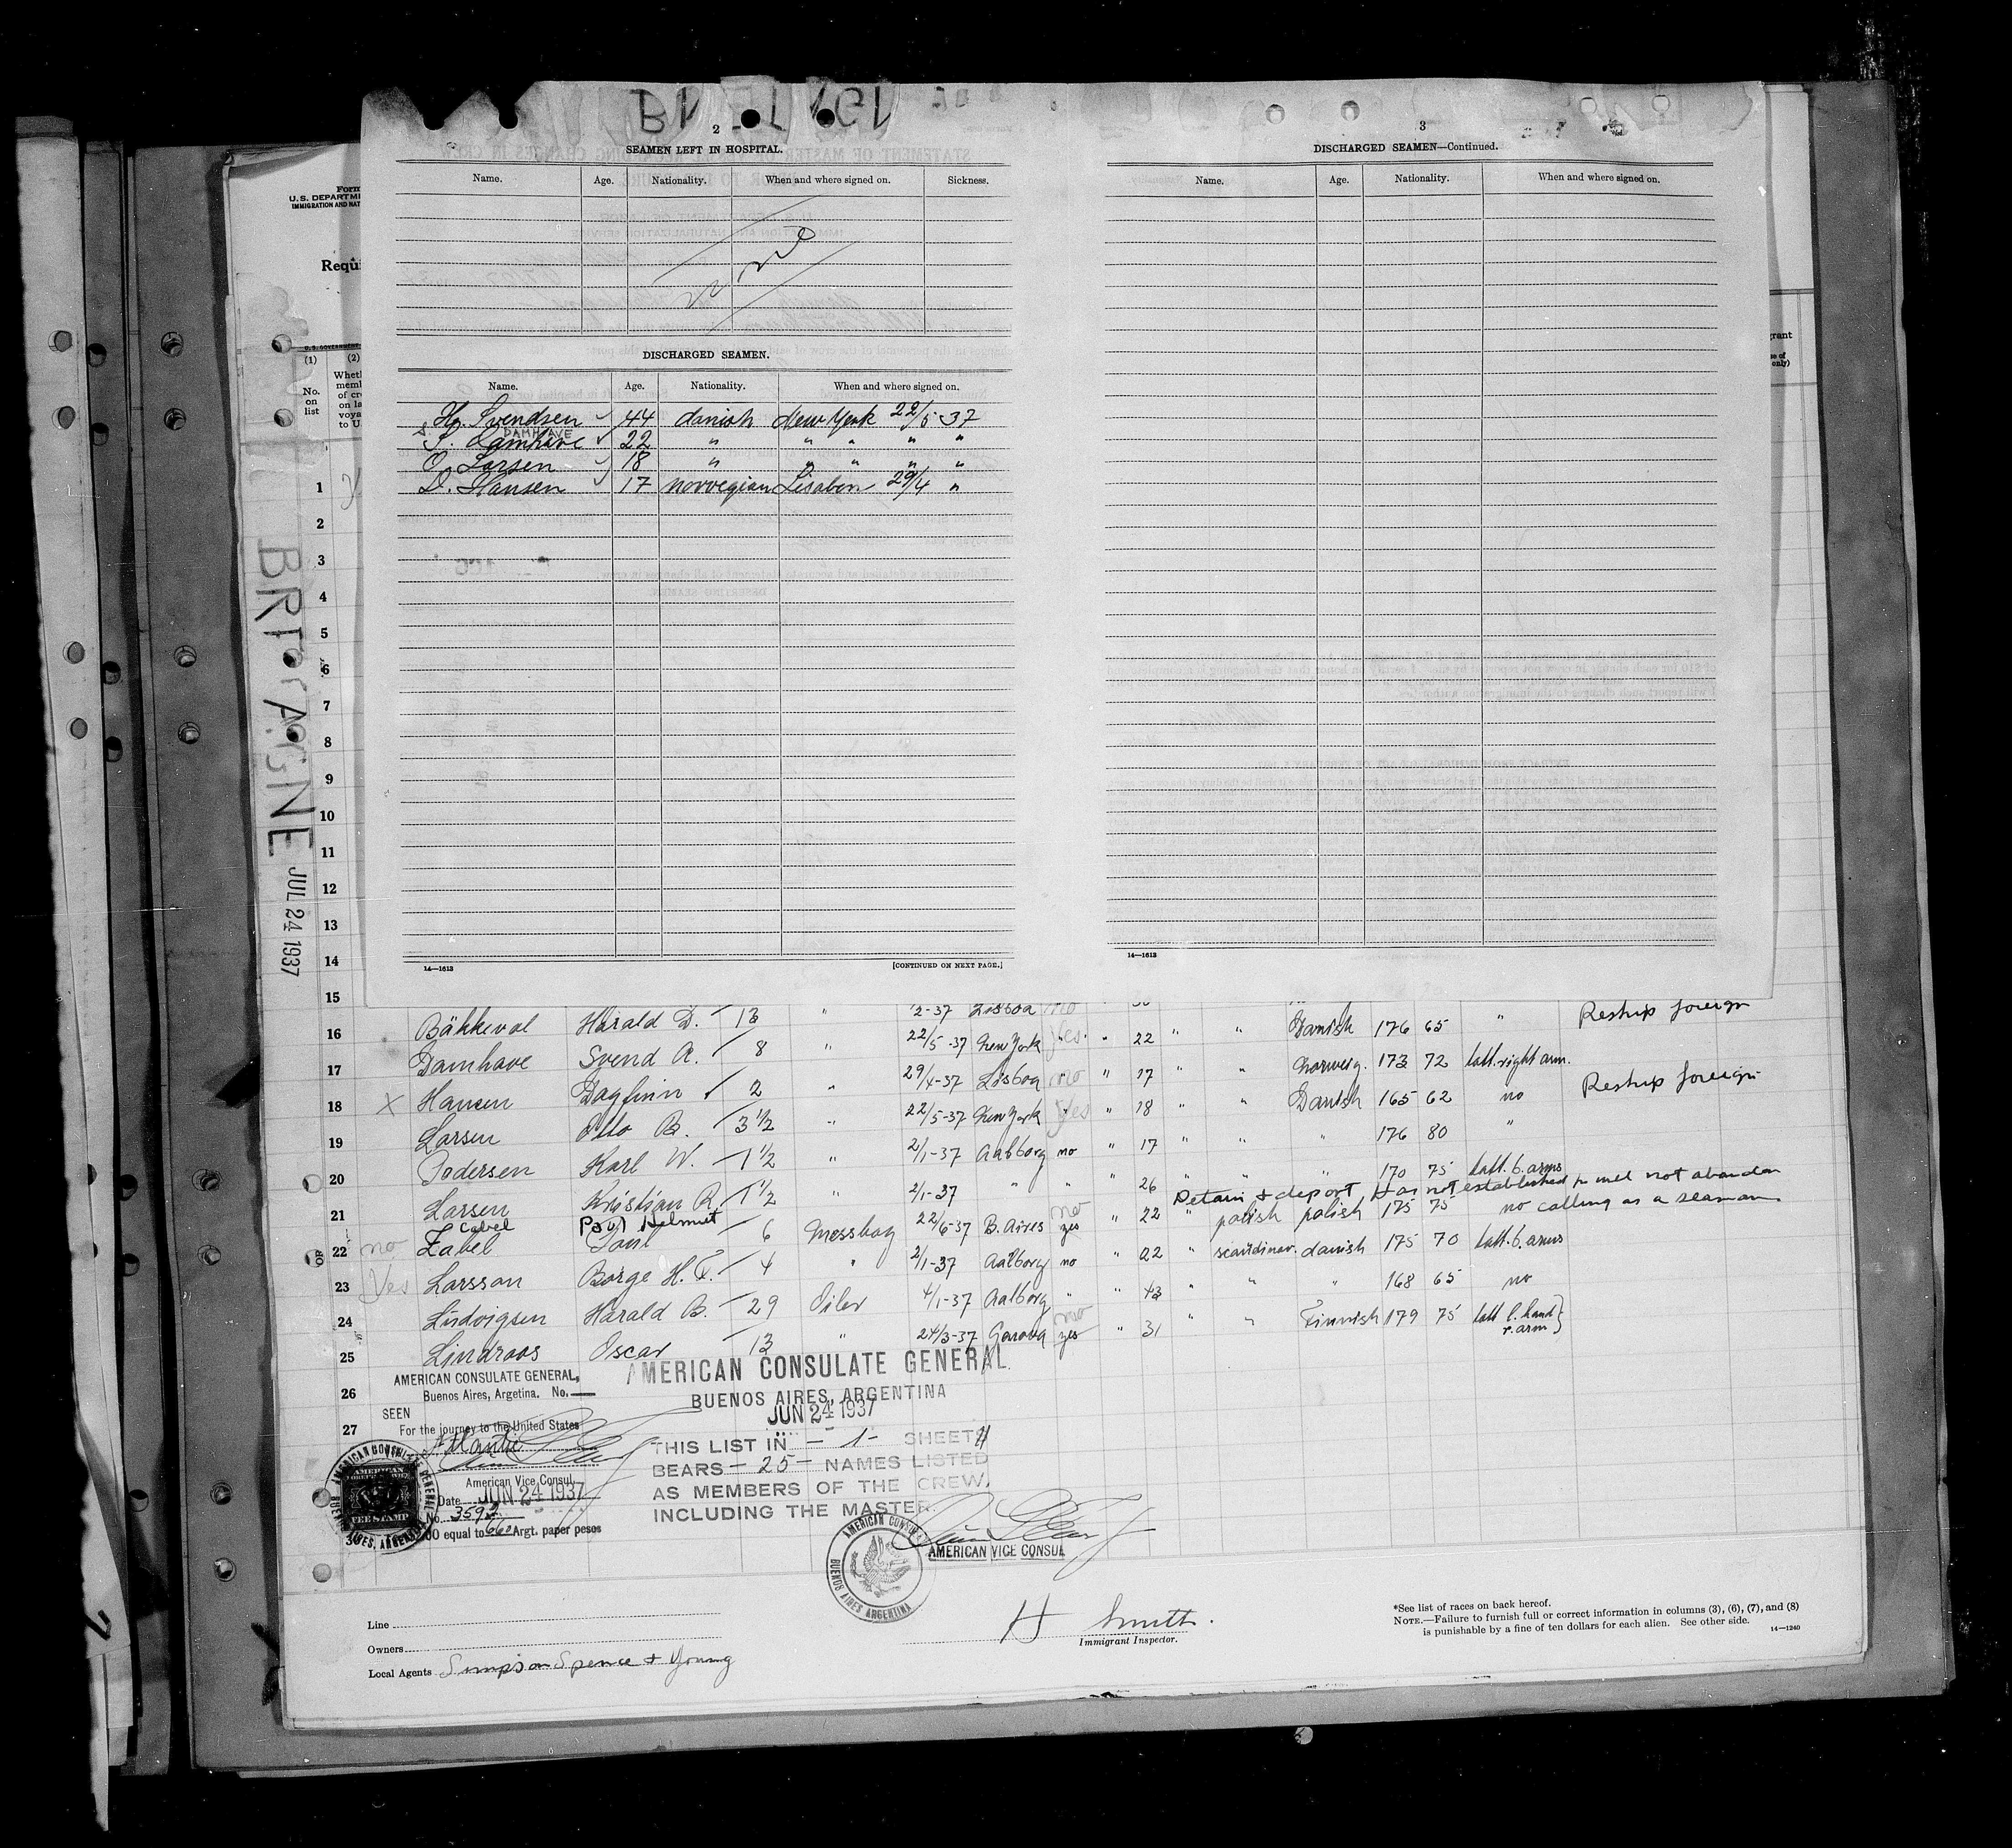 2
SEAMEN LEFT IN HOSPITAL.
Name. Age. Nationality. When and where signed on. Sickness.
DISCHARGED SEAMEN.
Name. Age. Nationality. When and where signed on.
Hp. Svendsen 44 danish New York 22/5 37
DAMHAVE
S. Damhave 22 " " " " "
O. Larsen 18 " " " " "
D. Hansen 17 norvegian Lisabon 29/4 "
14—1613 [CONTINUED ON NEXT PAGE.]
3
DISCHARGED SEAMEN—Continued.
Name. Age. Nationality. When and where signed on.
14—1613
Form
U.S. DEPARTM
IMMIGRATION AND NAT
Requi
U. S. GOVERNMENT
(1) (2)
No. on list
Wheth
memb
of cre
on la
voya
to U.
rant
se of
only)
BRETAGNE JUL 24 1937
1
2
3
4
5
6
7
8
9
10
11
12
13
14
15
16 Bäkkevol Harald D. 13 " 2-37 Lisboa no
17 Damhave Svend A. 8 " 22/5-37 New York yes " 22 " " Danish 176 65 " Reship foreign
18 x Hansen Dagfinn 2 " 29/4-37 Lisboa no " 17 " norweig. 173 72 tatt. right arm.
19 Larsen Otto B. 3 1/2 " 22/5-37 New York yes " 18 " " Danish 165 62 no Reship foreign
20 Pedersen Karl W. 1 1/2 " 2/1-37 Aalborg no " 17 " " " 176 80 "
21 Larsen Kristian R. 1 1/2 " 2/1-37 " " " 26 " " 170 75 tatt. b. arms
Detain + deport Has not established he will not abandon
calling as a seaman
Cabel Paul Helmut
22 no Zabel Paul 6 Messboy 22/6-37 B. Aires no yes " 22 " polish polish 175 75 no
23 Yes Larsson Børge H. F. 4 " 2/1-37 Aalborg no " 22 " scandinav. danish 175 70 tatt. b. arms
24 Ludvigsen Harald B. 29 Oiler 4/1-37 Aalborg " " 43 " " " 168 65 no
25 Lindroos Oscar 13 " 24/3-37 Genova no yes " 31 " " Finnish 179 75 tatt l. hand r. arm
26
27
30
AMERICAN CONSULATE GENERAL,
Buenos Aires, Argetina. No.
SEEN
For the journey to the United States
Atlantic
American Vice Consul.
Date JUN 24 1937
No. 3593
00 equal to 660 Argt. paper pesos
AMERICAN FOREIGN SERVICE
FEE STAMP
AMERICAN CONSULATE GENERAL
BUENOS AIRES, ARGENTINA
AMERICAN CONSULATE GENERAL
BUENOS AIRES, ARGENTINA
JUN 24 1937
THIS LIST IN - 1 - SHEETS
BEARS - 25 - NAMES LISTED
AS MEMBERS OF THE CREW,
INCLUDING THE MASTER.
AMERICAN VICE CONSUL
AMERICAN CONSUL
BUENOS AIRES ARGENTINA
Line
Owners
Local Agents Simpson Spence + Young
H Smith.
Immigrant Inspector.
*See list of races on back hereof.
NOTE.—Failure to furnish full or correct information in columns (3), (6), (7), and (8)
is punishable by a fine of ten dollars for each alien. See other side.
14—1240